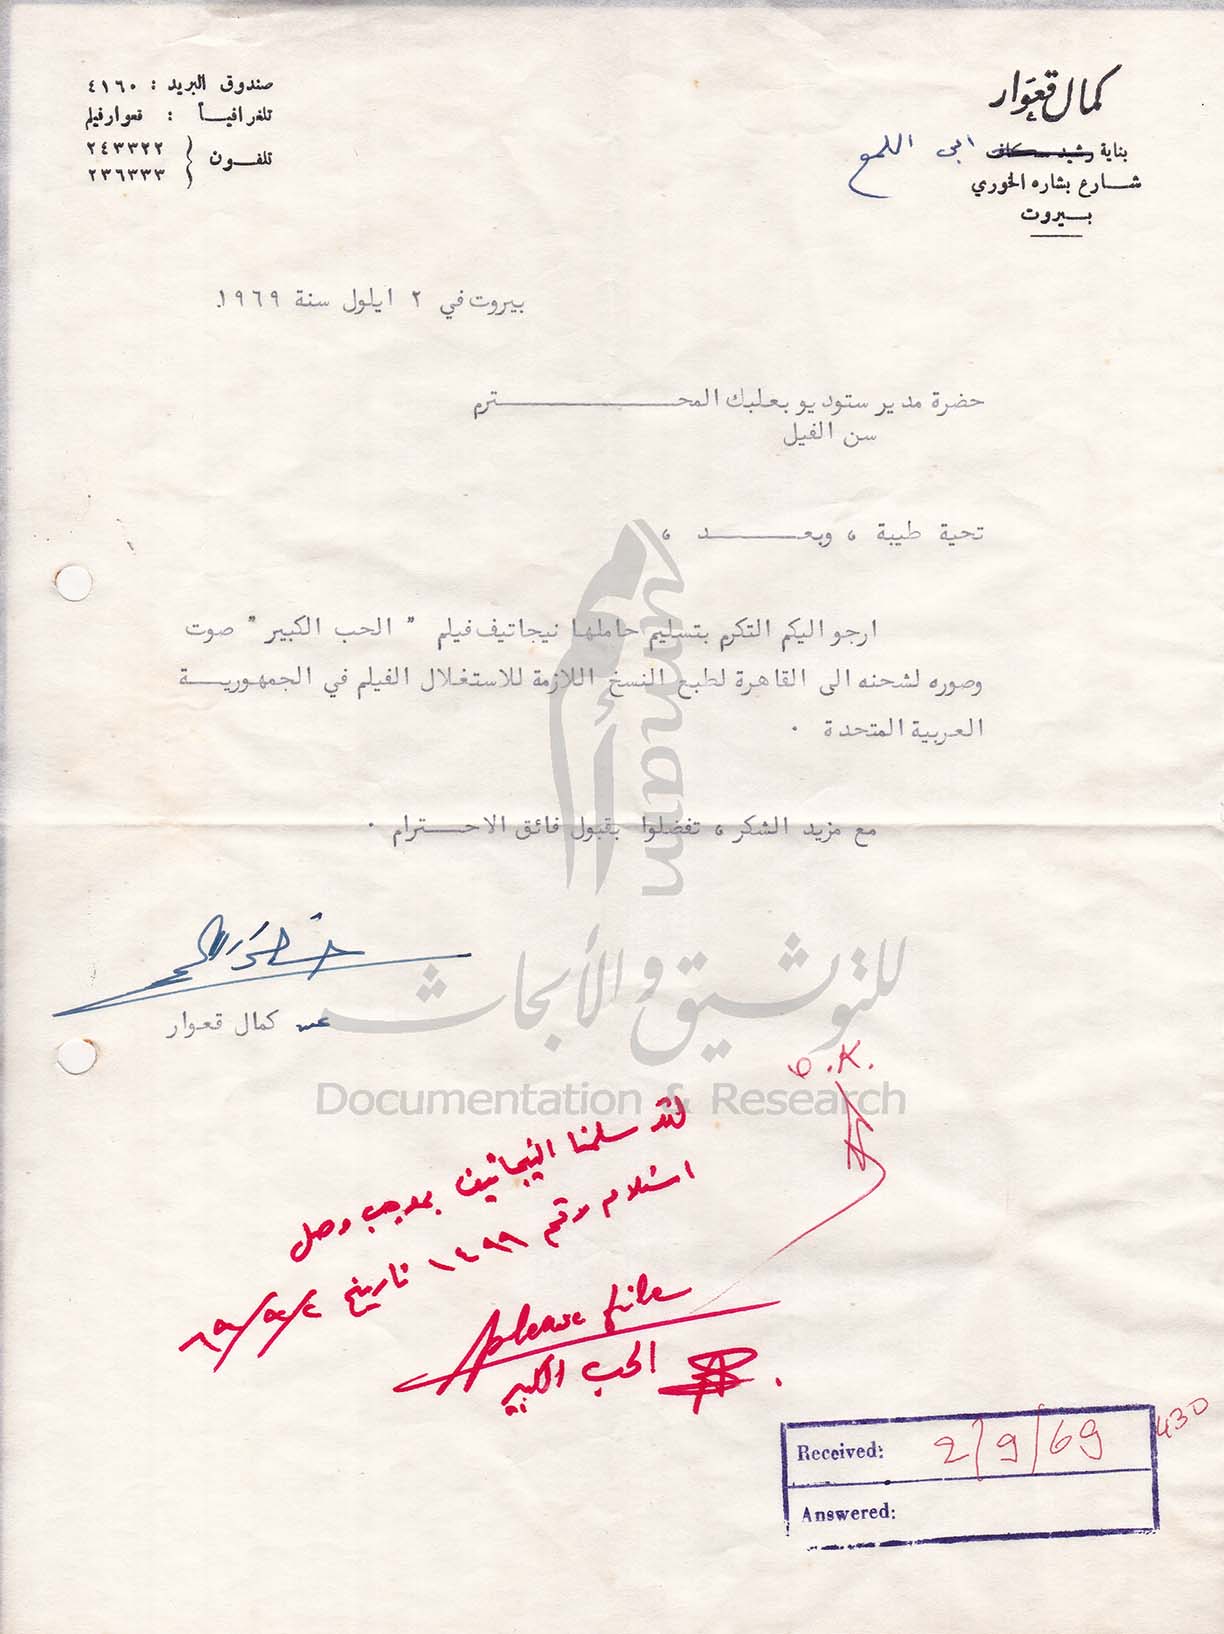 كمال قعوار
بناية رشيد كاف ابي اللمع
شارع بشاره الخوري
بيروت
صندوق البريد : ٤١٦٠
تلغرافياً : قعوار فيلم
تلفون ٢٤٣٣٢٢
٢٣٦٣٣٣
بيروت في ٢ ايلول سنة ١٩٦٩.
حضرة مدير ستوديو بعلبك المحترم
سن الفيل
تحية طيبة ، وبعد ،
ارجو اليكم التكرم بتسليم حاملها نيجاتيف فيلم " الحب الكبير " صوت
وصوره لشحنه الى القاهرة لطبع النسخ اللازمة للاستغلال الفيلم في الجمهورية
العربية المتحدة .
مع مزيد الشكر ، تفضلوا بقبول فائق الاحترام .
عن كمال قعوار
umam
للتوثيق والأبحاث
Documentation & Research
O.K.
لقد سلمنا النيجاتيف بموجب وصل
استلام رقم ١٤٩٩ تاريخ ٦٩/٩/٢
please file
الحب الكبير
Received: 2/9/69
430
Answered: